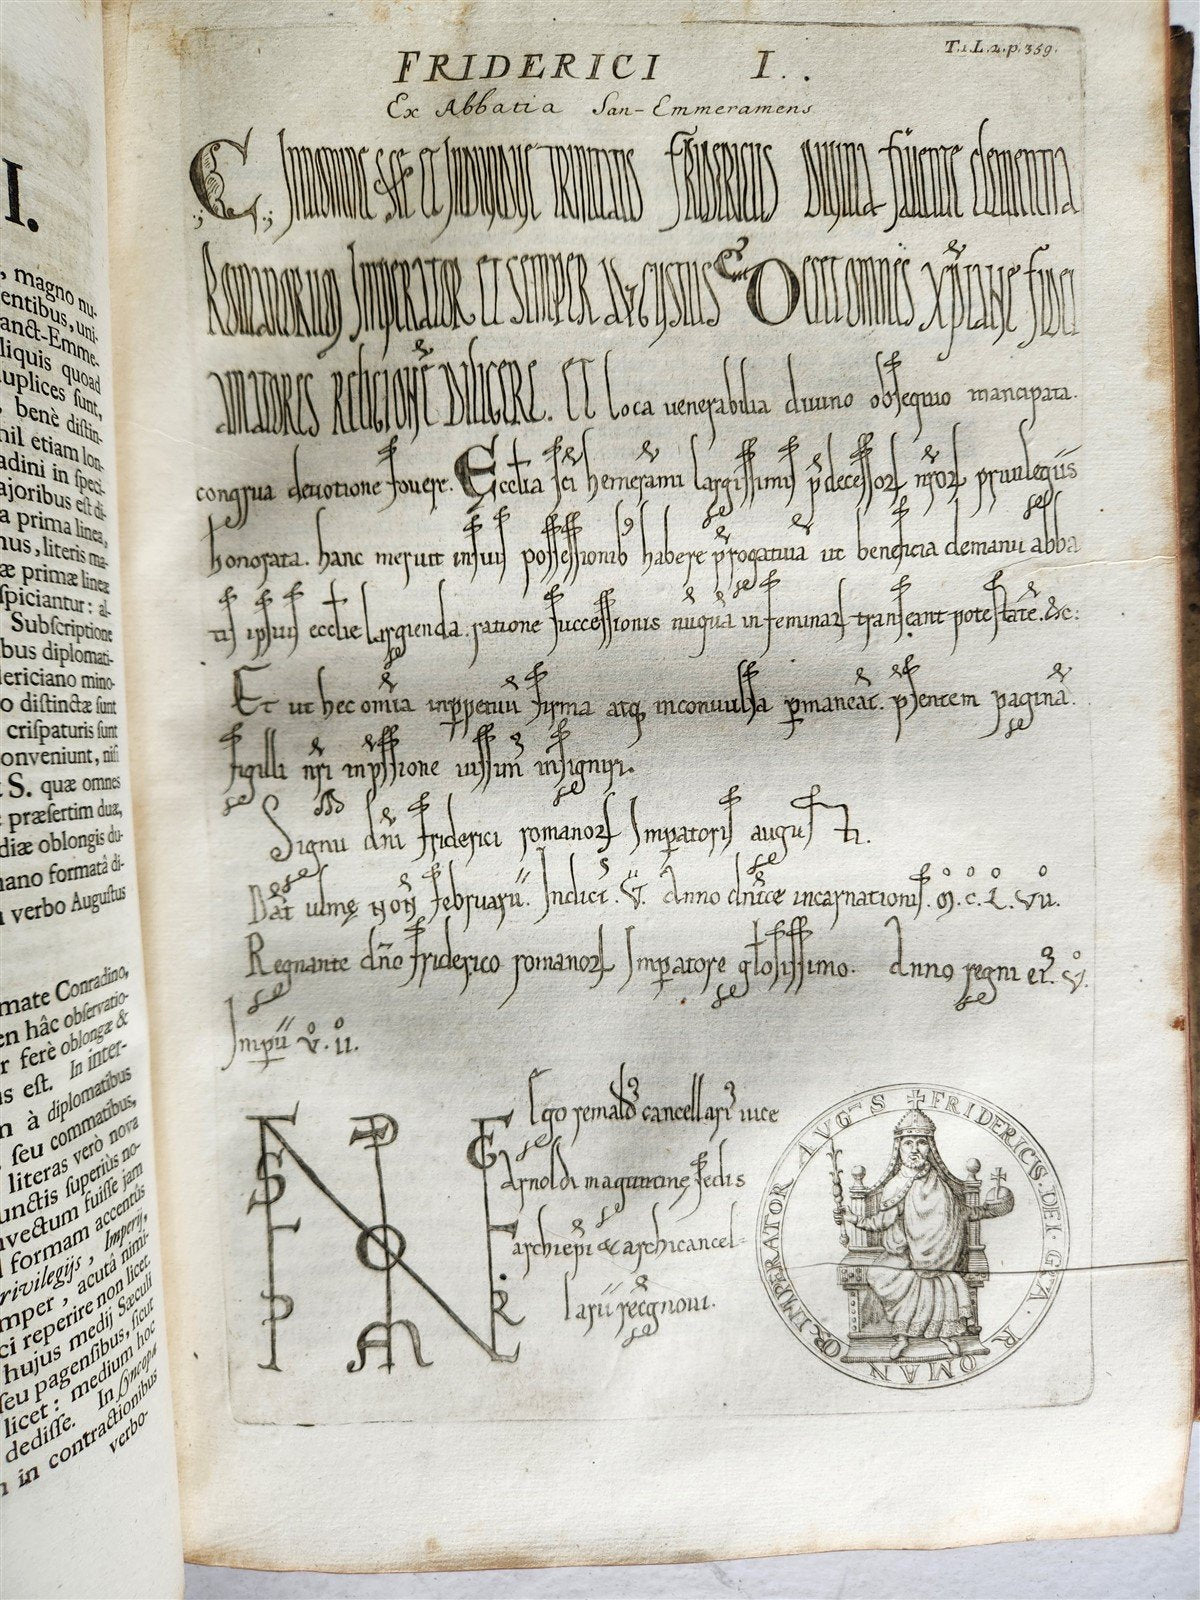 I.
, magno nu-
entibus, uni-
anct-Emme-
liquis quoad
uplices ſunt,
, benè diſtin-
nil etiam lon-
adini in ſpeci-
ajoribus eſt di-
a prima linea,
nus, literis ma-
æ primæ lineæ
ſpiciantur: al-
Subſcriptione
ibus diplomati-
dericiano mino-
o diſtinctæ ſunt
criſpaturis ſunt
onveniunt, niſi
S. quæ omnes
præſertim duæ,
diæ oblongis du-
mano formatâ di-
n verbo Auguſtus
mate Conradino,
en hâc obſervatio-
r ferè oblongæ &
us eſt. In inter-
n à diplomatibus
ſeu commatibus,
literas verò nova
unctis ſuperiùs no-
nvectum fuiſſe jam
formam accentûs
rivilegijs, Imperij,
mper, acutâ nimi-
ci reperire non licet.
hujus medij Sæculi
ſeu pagenſibus, ſicut
licet: medium hoc
dediſſe. In ſyncopis
n in contractionibus
verbo-
T.1.L.2.p.359.
FRIDERICI I..
Ex Abbatia San-Emmeramens
C. In nomine sce et individue trinitatis Fridericus divina favente clementia
Romanorum Imperator et semper augustus Docet omnes xpiane fidei
amatores religionē diligere. Et loca venerabilia divino obsequio mancipata.
congrua devotione fovere. Ecclia sci hemerami largissimis pdecessorꝝ nrorꝝ privilegiis
honorata. hanc meruit in suis possessionibꝰ habere progativā ut beneficia de manu abba
tis ipsius ecclie largienda. ratione successionis nūquā in feminas transeant potestatē. &c:
Et ut hec omīa in ppetuū firma atq inconvulsa pmaneāt. psentem paginā.
sigilli nri inpssione iussim insigniri.
Signū dni friderici romanorꝝ Imperatoris augusti.
Dat ulme non februarii. Indict. v. Anno dnice incarnationis. M. C. L. VII.
Regnante dno friderico romanorꝝ Imperatore glosissimo. Anno regni eꝰ. v.
Imperii v. II.
Ego renaldꝰ cancellariꝰ vice
Arnoldi maguntine sedis
archiepi & archicancel-
larii recognovi.
✝ FRIDERICUS. DEI. GR̄A. ROMANOR. IMPERATOR AVG~S